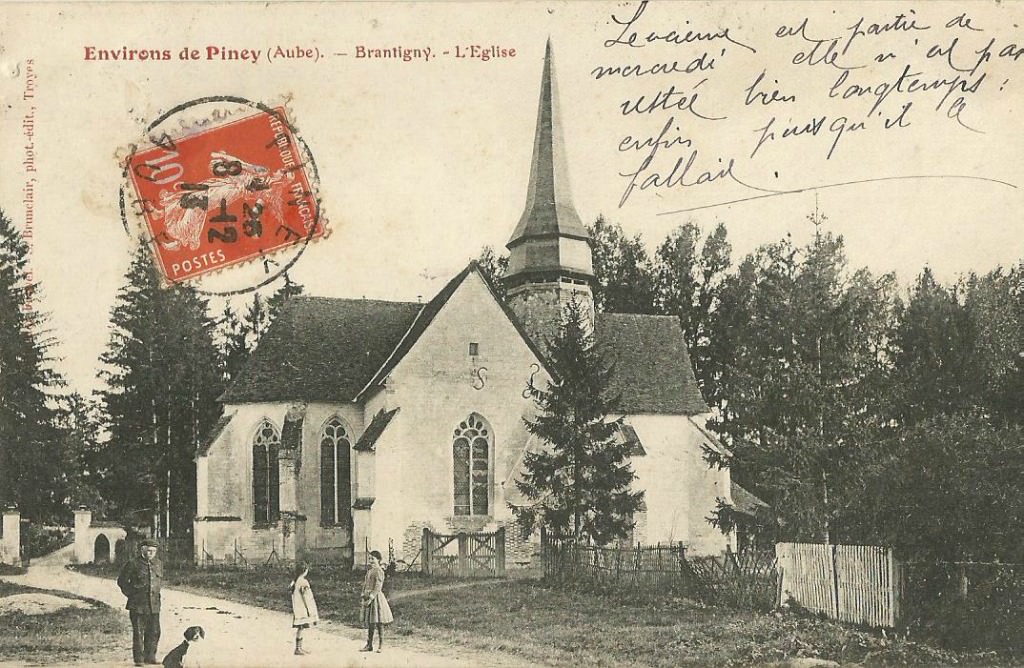 Environs de Piney (Aube). — Brantigny. - L'Eglise
est partie de
mercredi elle n'est pas
restée bien longtemps :
enfin puisqu'il le
fallait.
Brunclair, phot.-édit., Troyes
REPUBLIQUE FRANÇAISE
10
POSTES
8
13
28-12